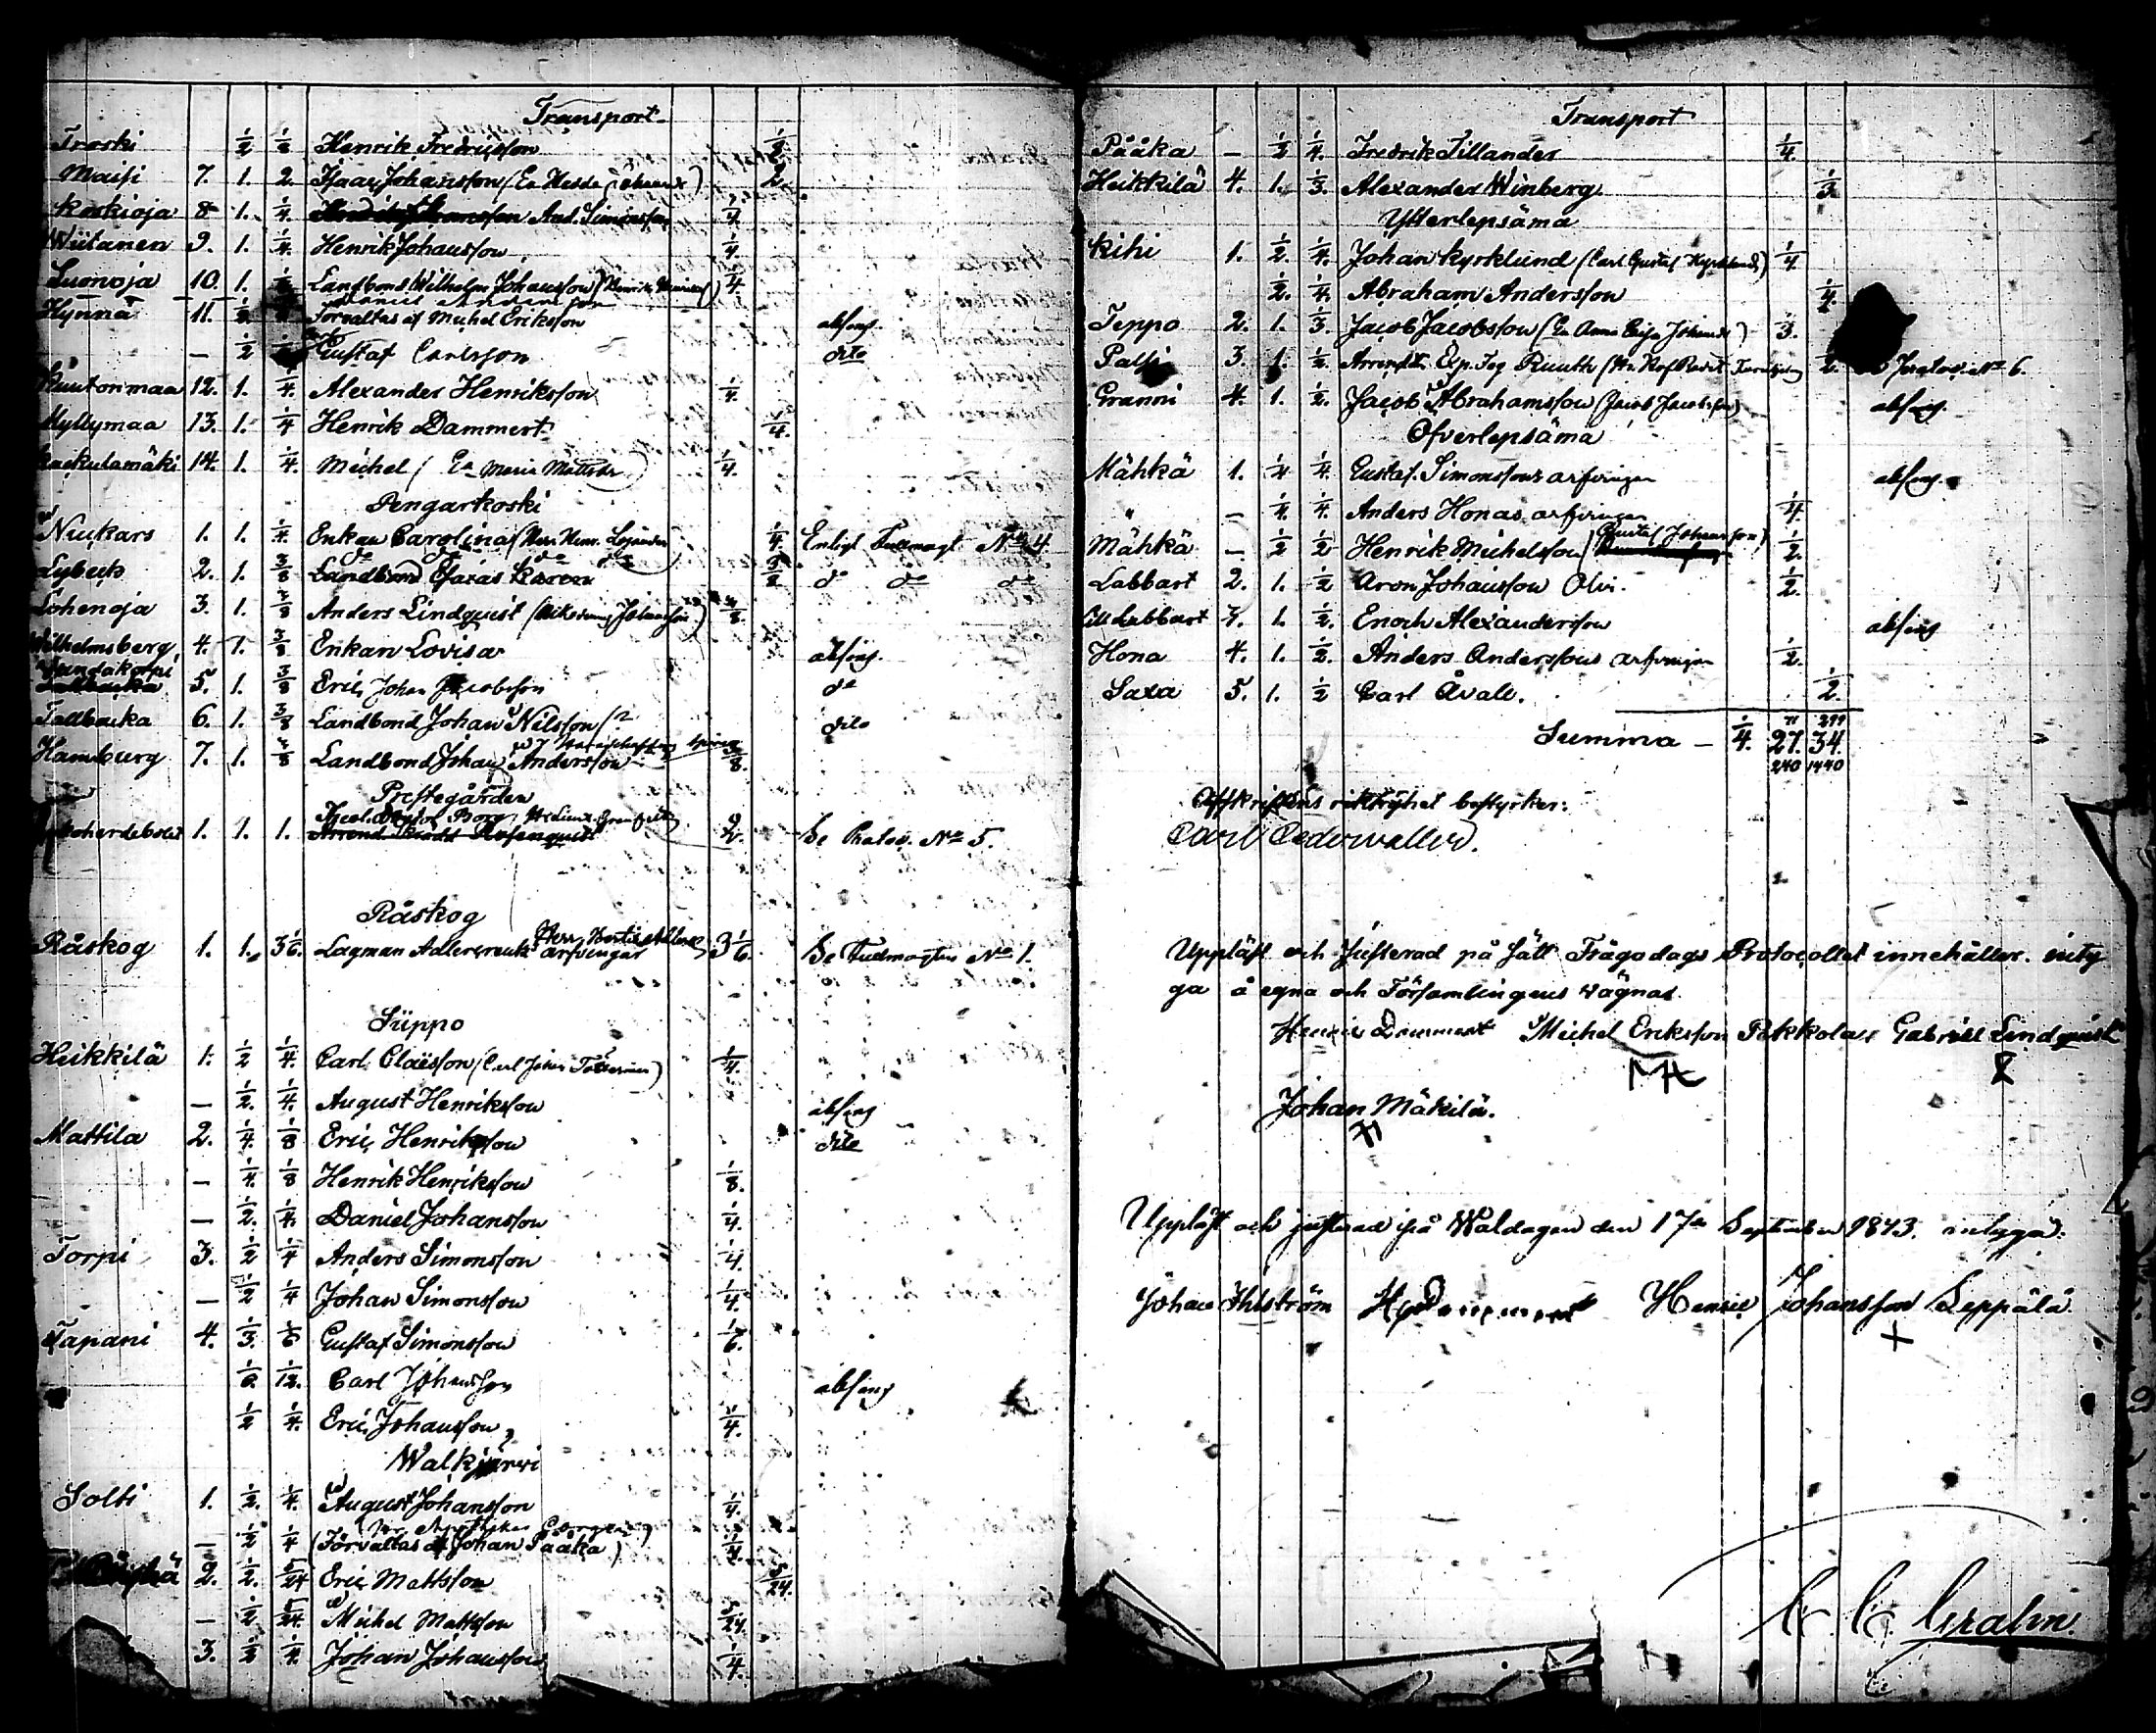 Transport
Troski ½ ½ Henrik Fredriksson ½
Maisi 7. 1. 2. Isaac Johansson (En Hedda Johansd:r) 2.
Koskioja 8 1. ¼. And. Simonsson ¼
Wiitanen 9. 1. ¼. Henrik Johansson ¼.
Luonoja 10. 1. Landbond. Wilhelm Johansson (Henrik Henrikss) ¼
Hynnä 11. ½ Förvaltas af Michel Eriksson absens.
— ½ Gustaf Carlsson dito
12. 1. ¼. Alexander Henriksson ¼.
Myllymaa 13. 1. ¼ Henrik Dammert ¼.
14. 1. ¼. Michel (En Maria Mattsdr) ¼.
Pengarkoski
Niukars 1. 1. ¼. Enkan Carolina (Herr Henr. Lojander) ¼. Enligt Fullmagt No 4
Lybeck 2. 1. ⅜ Landbond Esaias Karen ⅜ do do do
Lohenoja 3. 1. ⅜ Anders Lindquist (Nikodemus Johansson) ⅜.
Wilhelmsberg 4. 1. ⅜ Enkan Lovisa absens.
5. 1. ⅜ Eric Johan Jacobsson do
Tallbacka 6. 1. ⅜ Landbond Johan Nilsson dito
Hamburg 7. 1. ⅜ Landbond Johan Andersson ⅜.
Prestegården
1. 1. 1. Se Protoc. No 5.
Råskog
Råskog 1. 1. 3⅙. Lagman Adlercreutz arfvingar 3⅙. Se Fullmagten No 1.
Siippo
Heikkilä 1. ½ ¼. Carl Claësson (Carl Johan ) ¼.
— ½. ¼. August Henriksson absens
Mattila 2. ¼. ⅛ Eric Henriksson dito
— ¼. ⅛ Henrik Henriksson ⅛.
— ½. ¼. Daniel Johansson ¼.
Torpi 3. ½ ¼ Anders Simonsson ¼.
— ½ ¼ Johan Simonsson ¼.
Tapani 4. ⅓. ⅙ Gustaf Simonsson ⅙.
⅙ 1/12. Carl Johansson absens
½ ¼. Eric Johansson ¼.
Walkjärwi
Solti 1. ½. ¼. August Johansson ¼.
— ½ ¼ (Förvaltas af Johan Pääka) ¼.
2. ½. 5/24 Eric Mattsson 5/24.
— ½ 5/24. Michel Mattsson 5/24.
3. ½ ¼. Johan Johansson ¼.
Transport
Pääka — ½ ¼. Fredrik Tillander ¼.
Heikkilä 4. 1. ⅓. Alexander Winberg ⅓.
Ytterlepsäma
Kihi 1. ½. ¼. Johan Kyrklund (Carl Gustaf Kyrklund) ¼.
½. ¼. Abraham Andersson ¼.
Teppo 2. 1. ⅓. Jacob Jacobsson (En Anna Caisa Johansdr) ⅓.
Palsi 3. 1. ½. Exp. Ruuth ½. Protoc. No 6.
Granni 4. 1. ½. Jacob Abrahamsson (Jacob Jacobsson) absens.
Öfverlepsäma
Mähkä 1. ¼ ¼. Gustaf. Simonssons arfvingar absens.
" — ¼. ¼. Anders Honas arfvingar ¼.
Mähkä — ½ ½ Henrik Michelsson (Gustaf Johansson) ½.
Labbart 2. 1. ½ Aron Johansson Olvi. ½.
Lill Labbart 3. 1. ½. Enoch Alexandersson absens
Hona 4. 1. ½. Anders Anderssons arfvingar ½.
Saxa 5. 1. ½ Carl Åvall. ½.
Summa — ¼. 27. 34.
240 1440
Affskriftens riktighet bestyrker:
Carl Cederwaller.
Uppläst och justerad på sätt Frågodags Protocollet innehåller. inty
ga å egna och Församlingens vägnar.
Henric Dammert Michel Eriksson Pekkola Gabriel Lindquist
Johan Mäkilä.
Uppläst och justerad på Waldagen den 17de September 1843. intyga:
Johan Ihlström H. Dammert Henric Johansson Leppälä
C. C. Grahn.